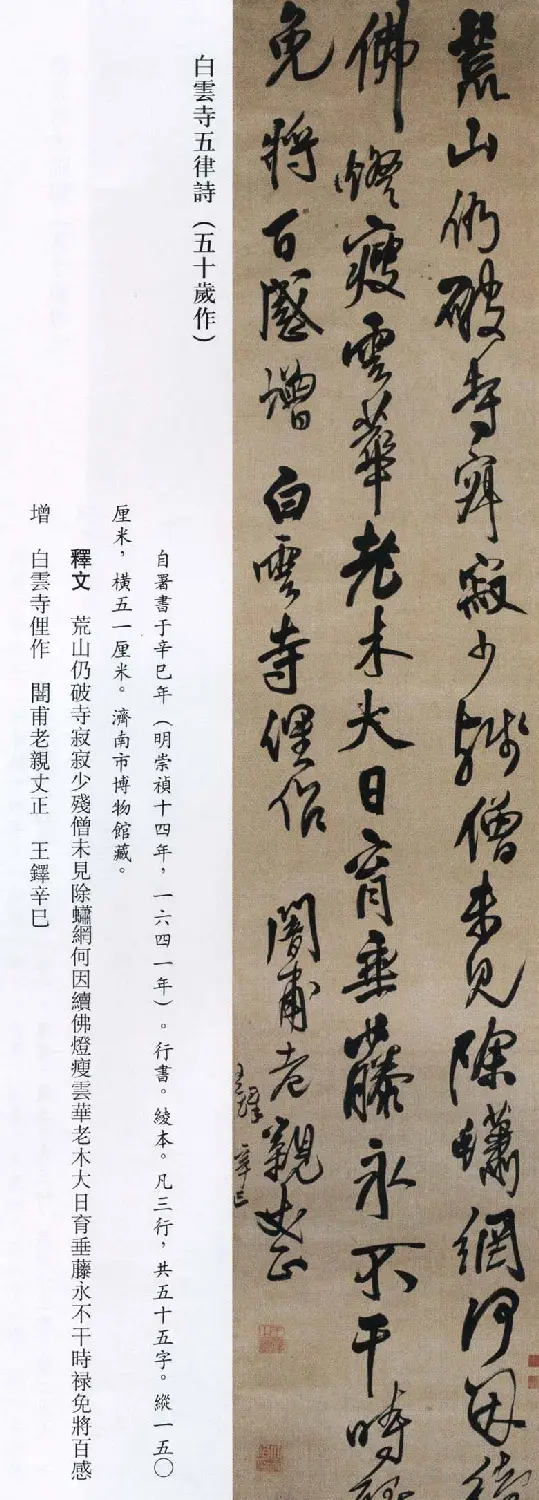 荒山仍破寺寂寂少殘僧未見除蟰網何因續
佛燈瘦雲華老木大日育垂藤永不干時禄
免將百感增 白雲寺俚作 闇甫老親丈正
王鐸 辛巳
白雲寺五律詩（五十歲作）
自署書于辛巳年（明崇禎十四年，一六四一年）。行書。綾本。凡三行，共五十五字。縱一五〇
厘米，橫五一厘米。濟南市博物館藏。
釋文 荒山仍破寺寂寂少殘僧未見除蟰網何因續佛燈瘦雲華老木大日育垂藤永不干時禄免將百感
增 白雲寺俚作 闇甫老親丈正 王鐸辛巳